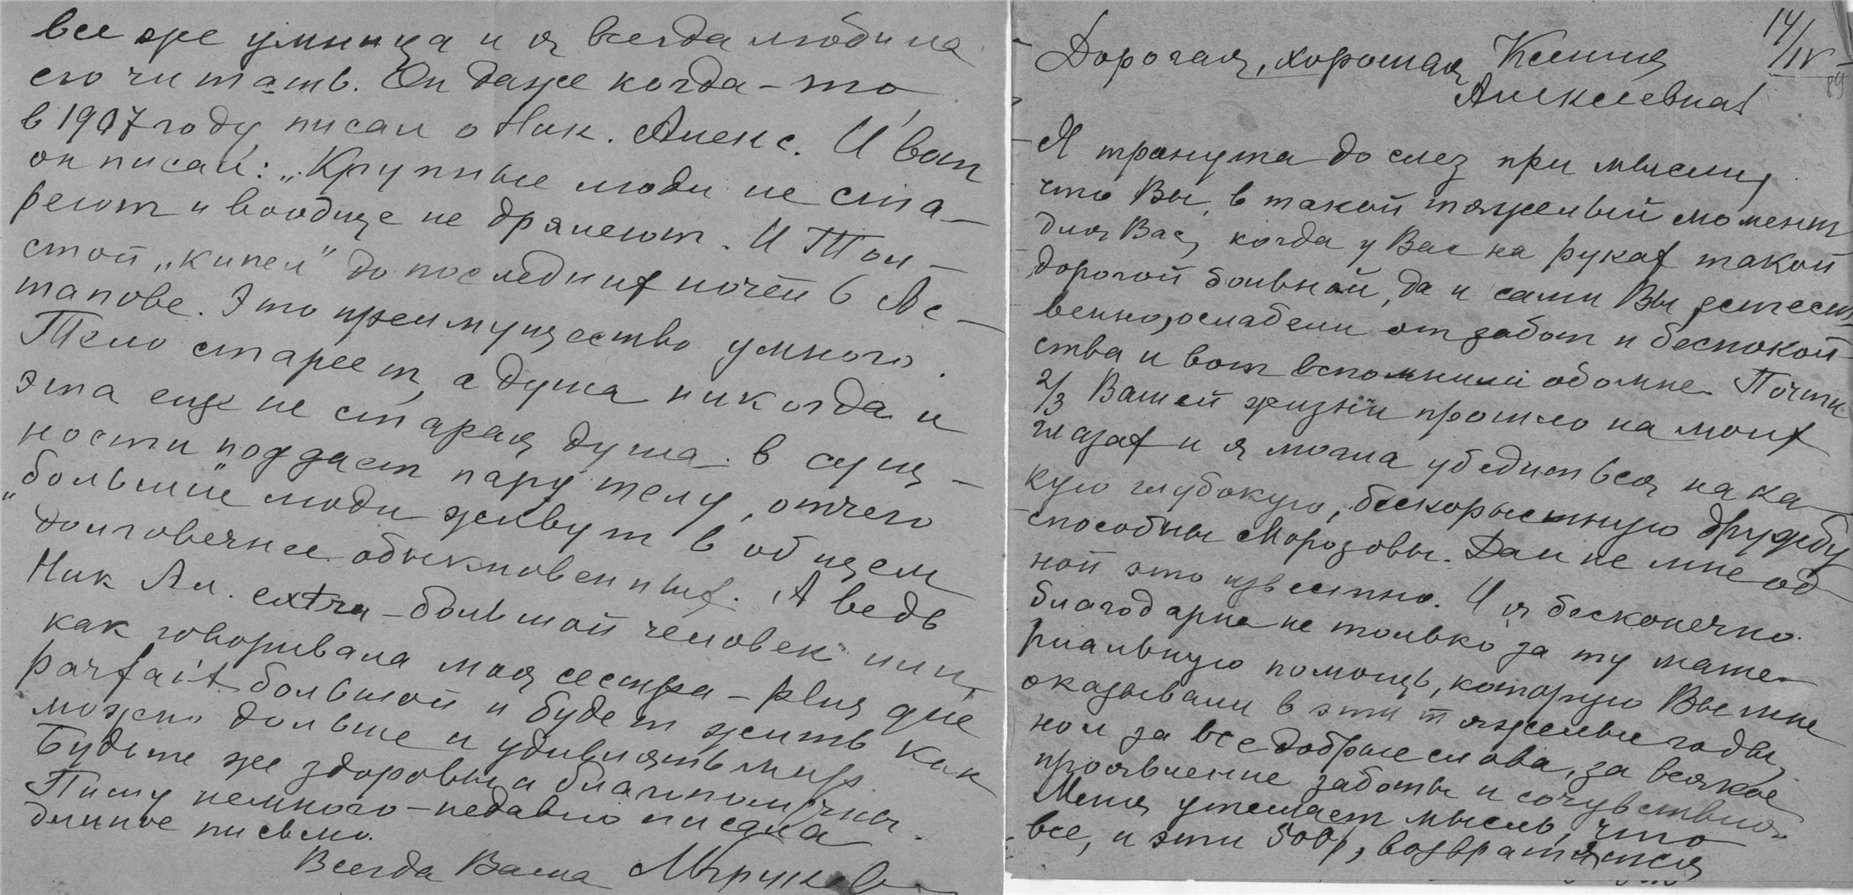 все же умница и я всегда любила
его читать. Он даже когда-то,
в 1907 году, писал о Ник. Алекс. И вот
он писал: „Крупные люди не ста-
реют и вообще не дряхлеют. И Тол-
стой „кипел“ до последних ночей в Ас-
тапове. Это преимущество умного.
Тело стареет, а душа никогда и
эта еще не старая душа в сущ-
ности поддает пару телу, отчего
„большие“ люди живут в общем
долговечнее обыкновенных. А ведь
Ник Ал. extra-большой человек или,
как говорила моя сестра – plus que
parfait большой и будет жить как
можно дольше и удивлять мир
Будьте же здоровы и благополучны.
Пишу немного – недавно писала
длинное письмо.
Всегда Ваша
14/IV
89
Дорогая, хорошая Ксения
Алексеевна!
Я тронута до слез при мысли,
что Вы, в такой тяжелый момент
для Вас, когда у Вас на руках такой
дорогой больной, да и сами Вы, естест-
венно, ослабели от забот и беспокой-
ства и вот вспомнили обо мне. Почти
2/3 Вашей жизни прошло на моих
глазах и я могла убедиться на ка-
кую глубокую, бескорыстную дружбу
способны Морозовы. Да и не мне од-
ной это известно. И я бесконечно
благодарна не только за ту мате-
риальную помощь, которую Вы мне
оказывали в эти тяжелые годы,
но и за все добрые слова, за всякое
проявление заботы и сочувствия.
Меня утешает мысль, что
все, и эти 500 р, возвратятся